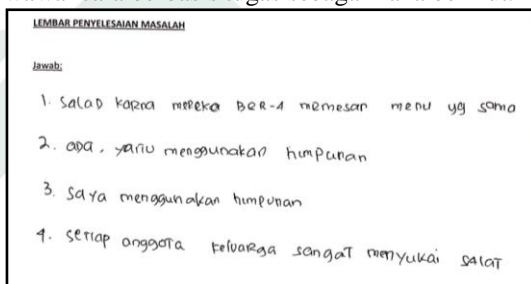 LEMBAR PENYELESAIAN MASALAH
Jawab:
1. SalaD karna mereka BER-4 memesan menu yg sama
2. ada, yaitu menggunakan himpunan
3. saya menggunakan himpunan
4. setiap anggota keluarga sangat menyukai salat